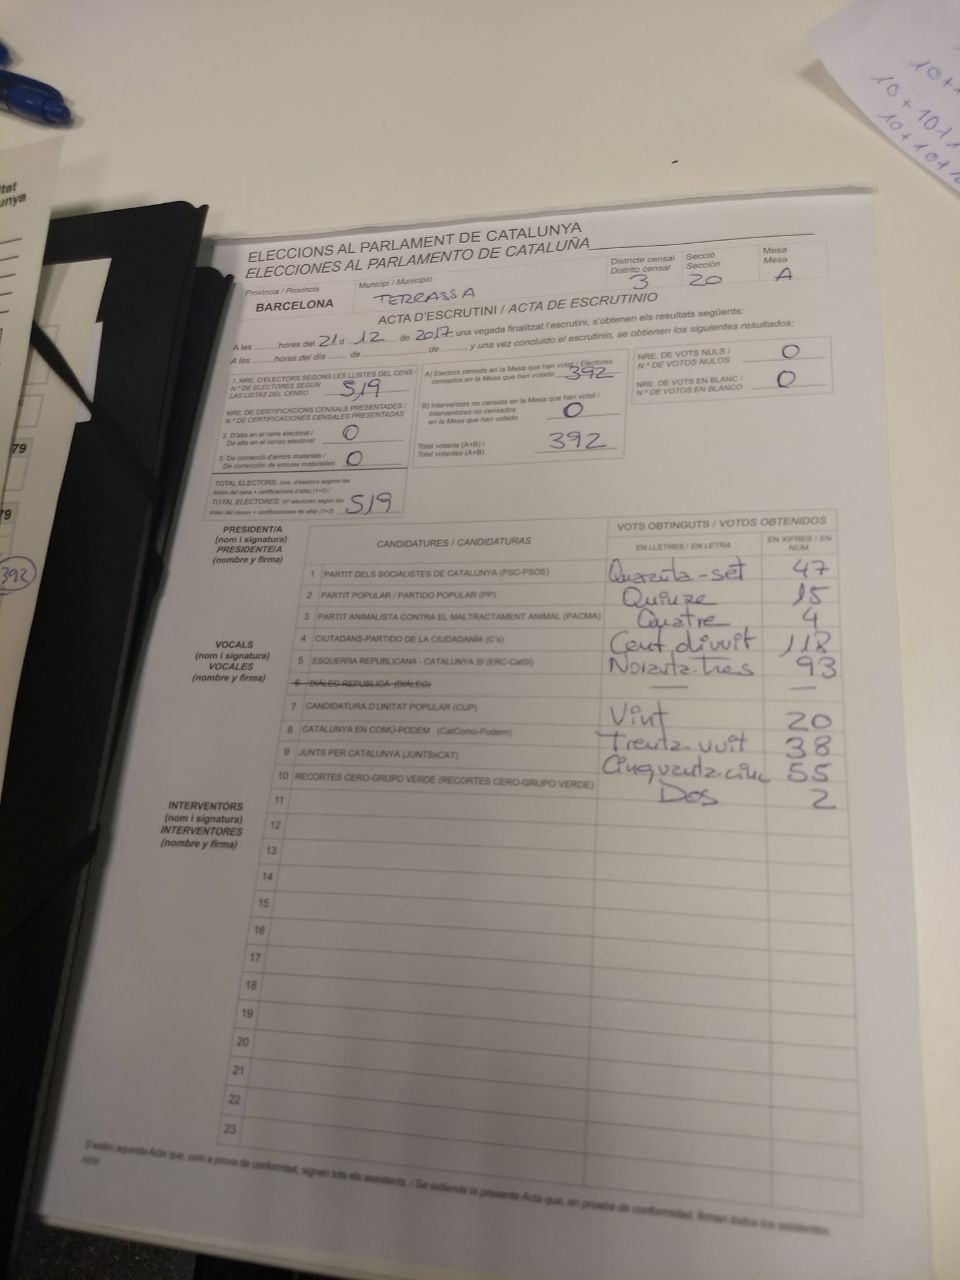 tat
unya
79
79
392
10+
10+10+1
10+10+10
ELECCIONS AL PARLAMENT DE CATALUNYA
ELECCIONES AL PARLAMENTO DE CATALUÑA
Província / Provincia
BARCELONA
Municipi / Municipio
TERRASSA
Districte censal
Distrito censal
3
Secció
Sección
20
Mesa
Mesa
A
ACTA D'ESCRUTINI / ACTA DE ESCRUTINIO
A les ........ hores del 21 d 12 de 2017 una vegada finalitzat l'escrutini, s'obtenen els resultats següents:
A las ........ horas del día ........ de ........ de ........ y una vez concluido el escrutinio, se obtienen los siguientes resultados:
1. NRE. D'ELECTORS SEGONS LES LLISTES DEL CENS /
N.º DE ELECTORES SEGÚN
LAS LISTAS DEL CENSO
519
NRE. DE CERTIFICACIONS CENSALS PRESENTADES /
N.º DE CERTIFICACIONES CENSALES PRESENTADAS
2. D'alta en el cens electoral /
De alta en el censo electoral:
0
3. De correcció d'errors materials /
De corrección de errores materiales:
0
TOTAL ELECTORS: (nre. d'electors segons les
llistes del cens + certificacions d'alta) (1+2) /
TOTAL ELECTORES: (nº electores según las
listas del censo + certificaciones de alta) (1+2)
519
A) Electors censats en la Mesa que han votat / Electores
censados en la Mesa que han votado
392
B) Interventors no censats en la Mesa que han votat /
Interventores no censados
en la Mesa que han votado
0
Total votants (A+B) /
Total votantes (A+B)
392
NRE. DE VOTS NULS /
N.º DE VOTOS NULOS
0
NRE. DE VOTS EN BLANC /
N.º DE VOTOS EN BLANCO
0
PRESIDENT/A
(nom i signatura)
PRESIDENTE/A
(nombre y firma)
VOCALS
(nom i signatura)
VOCALES
(nombre y firma)
INTERVENTORS
(nom i signatura)
INTERVENTORES
(nombre y firma)
CANDIDATURES / CANDIDATURAS
VOTS OBTINGUTS / VOTOS OBTENIDOS
EN LLETRES / EN LETRA
EN XIFRES / EN NÚM.
1 PARTIT DELS SOCIALISTES DE CATALUNYA (PSC-PSOE) Quaranta-set 47
2 PARTIT POPULAR / PARTIDO POPULAR (PP) Quinze 15
3 PARTIT ANIMALISTA CONTRA EL MALTRACTAMENT ANIMAL (PACMA) Quatre 4
4 CIUTADANS-PARTIDO DE LA CIUDADANÍA (C's) Cent divuit 118
5 ESQUERRA REPUBLICANA - CATALUNYA SÍ (ERC-CatSí) Noranta-tres 93
6 DIÀLEG REPUBLICÀ (DIÀLEG) — —
7 CANDIDATURA D'UNITAT POPULAR (CUP) Vint 20
8 CATALUNYA EN COMÚ-PODEM (CatComú-Podem) Trenta-vuit 38
9 JUNTS PER CATALUNYA (JUNTSxCAT) Cinquanta-cinc 55
10 RECORTES CERO-GRUPO VERDE (RECORTES CERO-GRUPO VERDE) Dos 2
11
12
13
14
15
16
17
18
19
20
21
22
23
S'estén aquesta Acta que, com a prova de conformitat, signen tots els assistents. / Se extiende la presente Acta que, en prueba de conformidad, firman todos los asistentes.